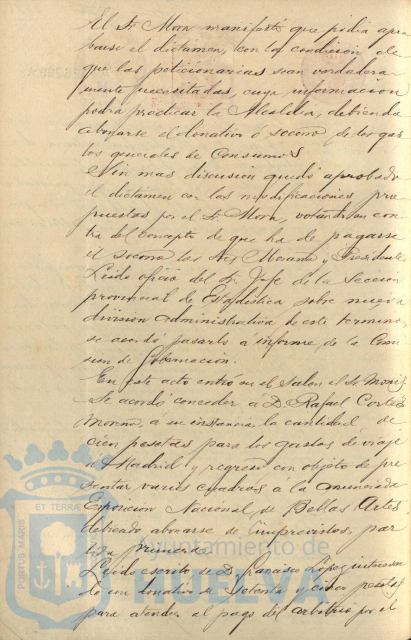 El Sr Mora manifestó que podia apro
barse el dictamen, con la condicion de
que las peticionarias sean verdadera
mente necesitadas, cuya informacion
podra practicar la Alcaldia, debiendo
abonarse el donativo ó socorro, de los gas
tos generales de Consumos
Sin mas discusion quedó aprobado
el dictamen con las modificaciones pro
puestas por el Sr Mora, votandose con
tra del concepto de que ha de pagarse
el socorro los Sres Morano y Presidente
Leido oficio del Sr Jefe de la Seccion
provincial de Estadistica sobre nueva
division administrativa de este termino,
se acordó pasarlo a informe de la Comi
sion de Gobernacion.
En este acto entró en el salon el Sr
Se acordó conceder á D. Rafael Cortés
Moreno, a su instancia la cantidad, de
cien pesetas para los gastos de viaje
a Madrid y regreso con objeto de pre
sentar varios cuadros á la anunciada
Exposicion Nacional de Bellas Artes,
debiendo abonarse de imprevistos, par
tida primera.
Leido escrito de D. Francisco Lopez interesan
do un donativo de setenta y cinco pesetas
para atender al pago del arbitrio por el
Ayuntamiento de
HUELVA
PORTUS MARIS ET TERRAE